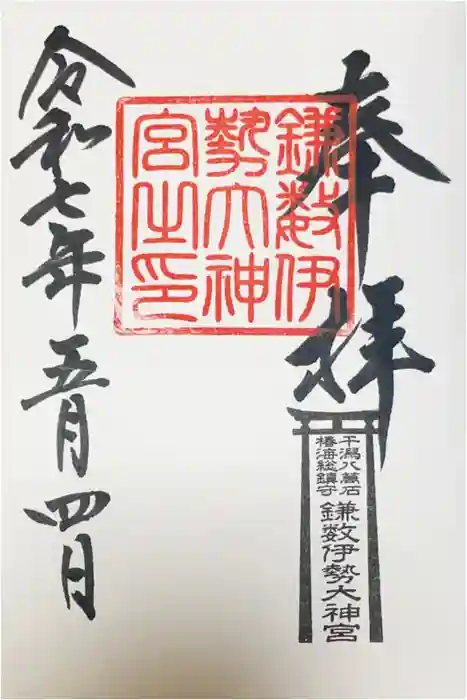 奉拝
干潟八萬石
椿海総鎮守
鎌数伊勢大神宮
鎌数伊
勢大神
宮之印
令和七年五月四日